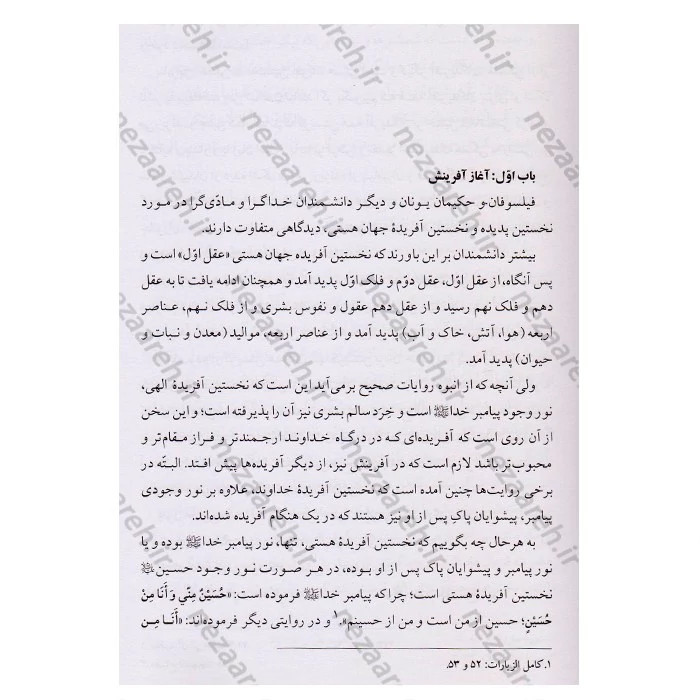 باب اوّل: آغاز آفرینش
فیلسوفان و حکیمان یونان و دیگر دانشمندان خداگرا و مادّی‌گرا در مورد
نخستین پدیده و نخستین آفریدهٔ جهان هستی، دیدگاهی متفاوت دارند.
بیشتر دانشمندان بر این باورند که نخستین آفریده جهان هستی «عقل اوّل» است و
پس آنگاه، از عقل اوّل، عقل دوّم و فلک اوّل پدید آمد و همچنان ادامه یافت تا به عقل
دهم و فلک نهم رسید و از عقل دهم عقول و نفوس بشری و از فلک نهم، عناصر
اربعه (هوا، آتش، خاک و آب) پدید آمد و از عناصر اربعه، موالید (معدن و نبات و
حیوان) پدید آمد.
ولی آنچه که از انبوه روایات صحیح برمی‌آید این است که نخستین آفریدهٔ الهی،
نور وجود پیامبر خداﷺ است و خِرَد سالم بشری نیز آن را پذیرفته است؛ و این سخن
از آن روی است که آفریده‌ای که در درگاه خداوند ارجمندتر و فراز مقام‌تر و
محبوب‌تر باشد لازم است که در آفرینش نیز، از دیگر آفریده‌ها پیش افتد. البتّه در
برخی روایت‌ها چنین آمده است که نخستین آفریدهٔ خداوند، علاوه بر نور وجودی
پیامبر، پیشوایان پاکِ پس از او نیز هستند که در یک هنگام آفریده شده‌اند.
به هرحال چه بگوییم که نخستین آفریدهٔ هستی، تنها، نور پیامبر خداﷺ بوده و یا
نور پیامبر و پیشوایان پاک پس از او بوده، در هر صورت نور وجود حسین
نخستین آفریدهٔ هستی است؛ چراکه پیامبر خداﷺ فرموده است: «حُسَیْنٌ مِنّي وَ أَنَا مِنْ
حُسَیْنٍ؛ حسین از من است و من از حسینم».۱ و در روایتی دیگر فرموده‌اند: «أَنَا مِن
۱. کامل الزیارات: ۵۲ و ۵۳.
nezaareh.ir